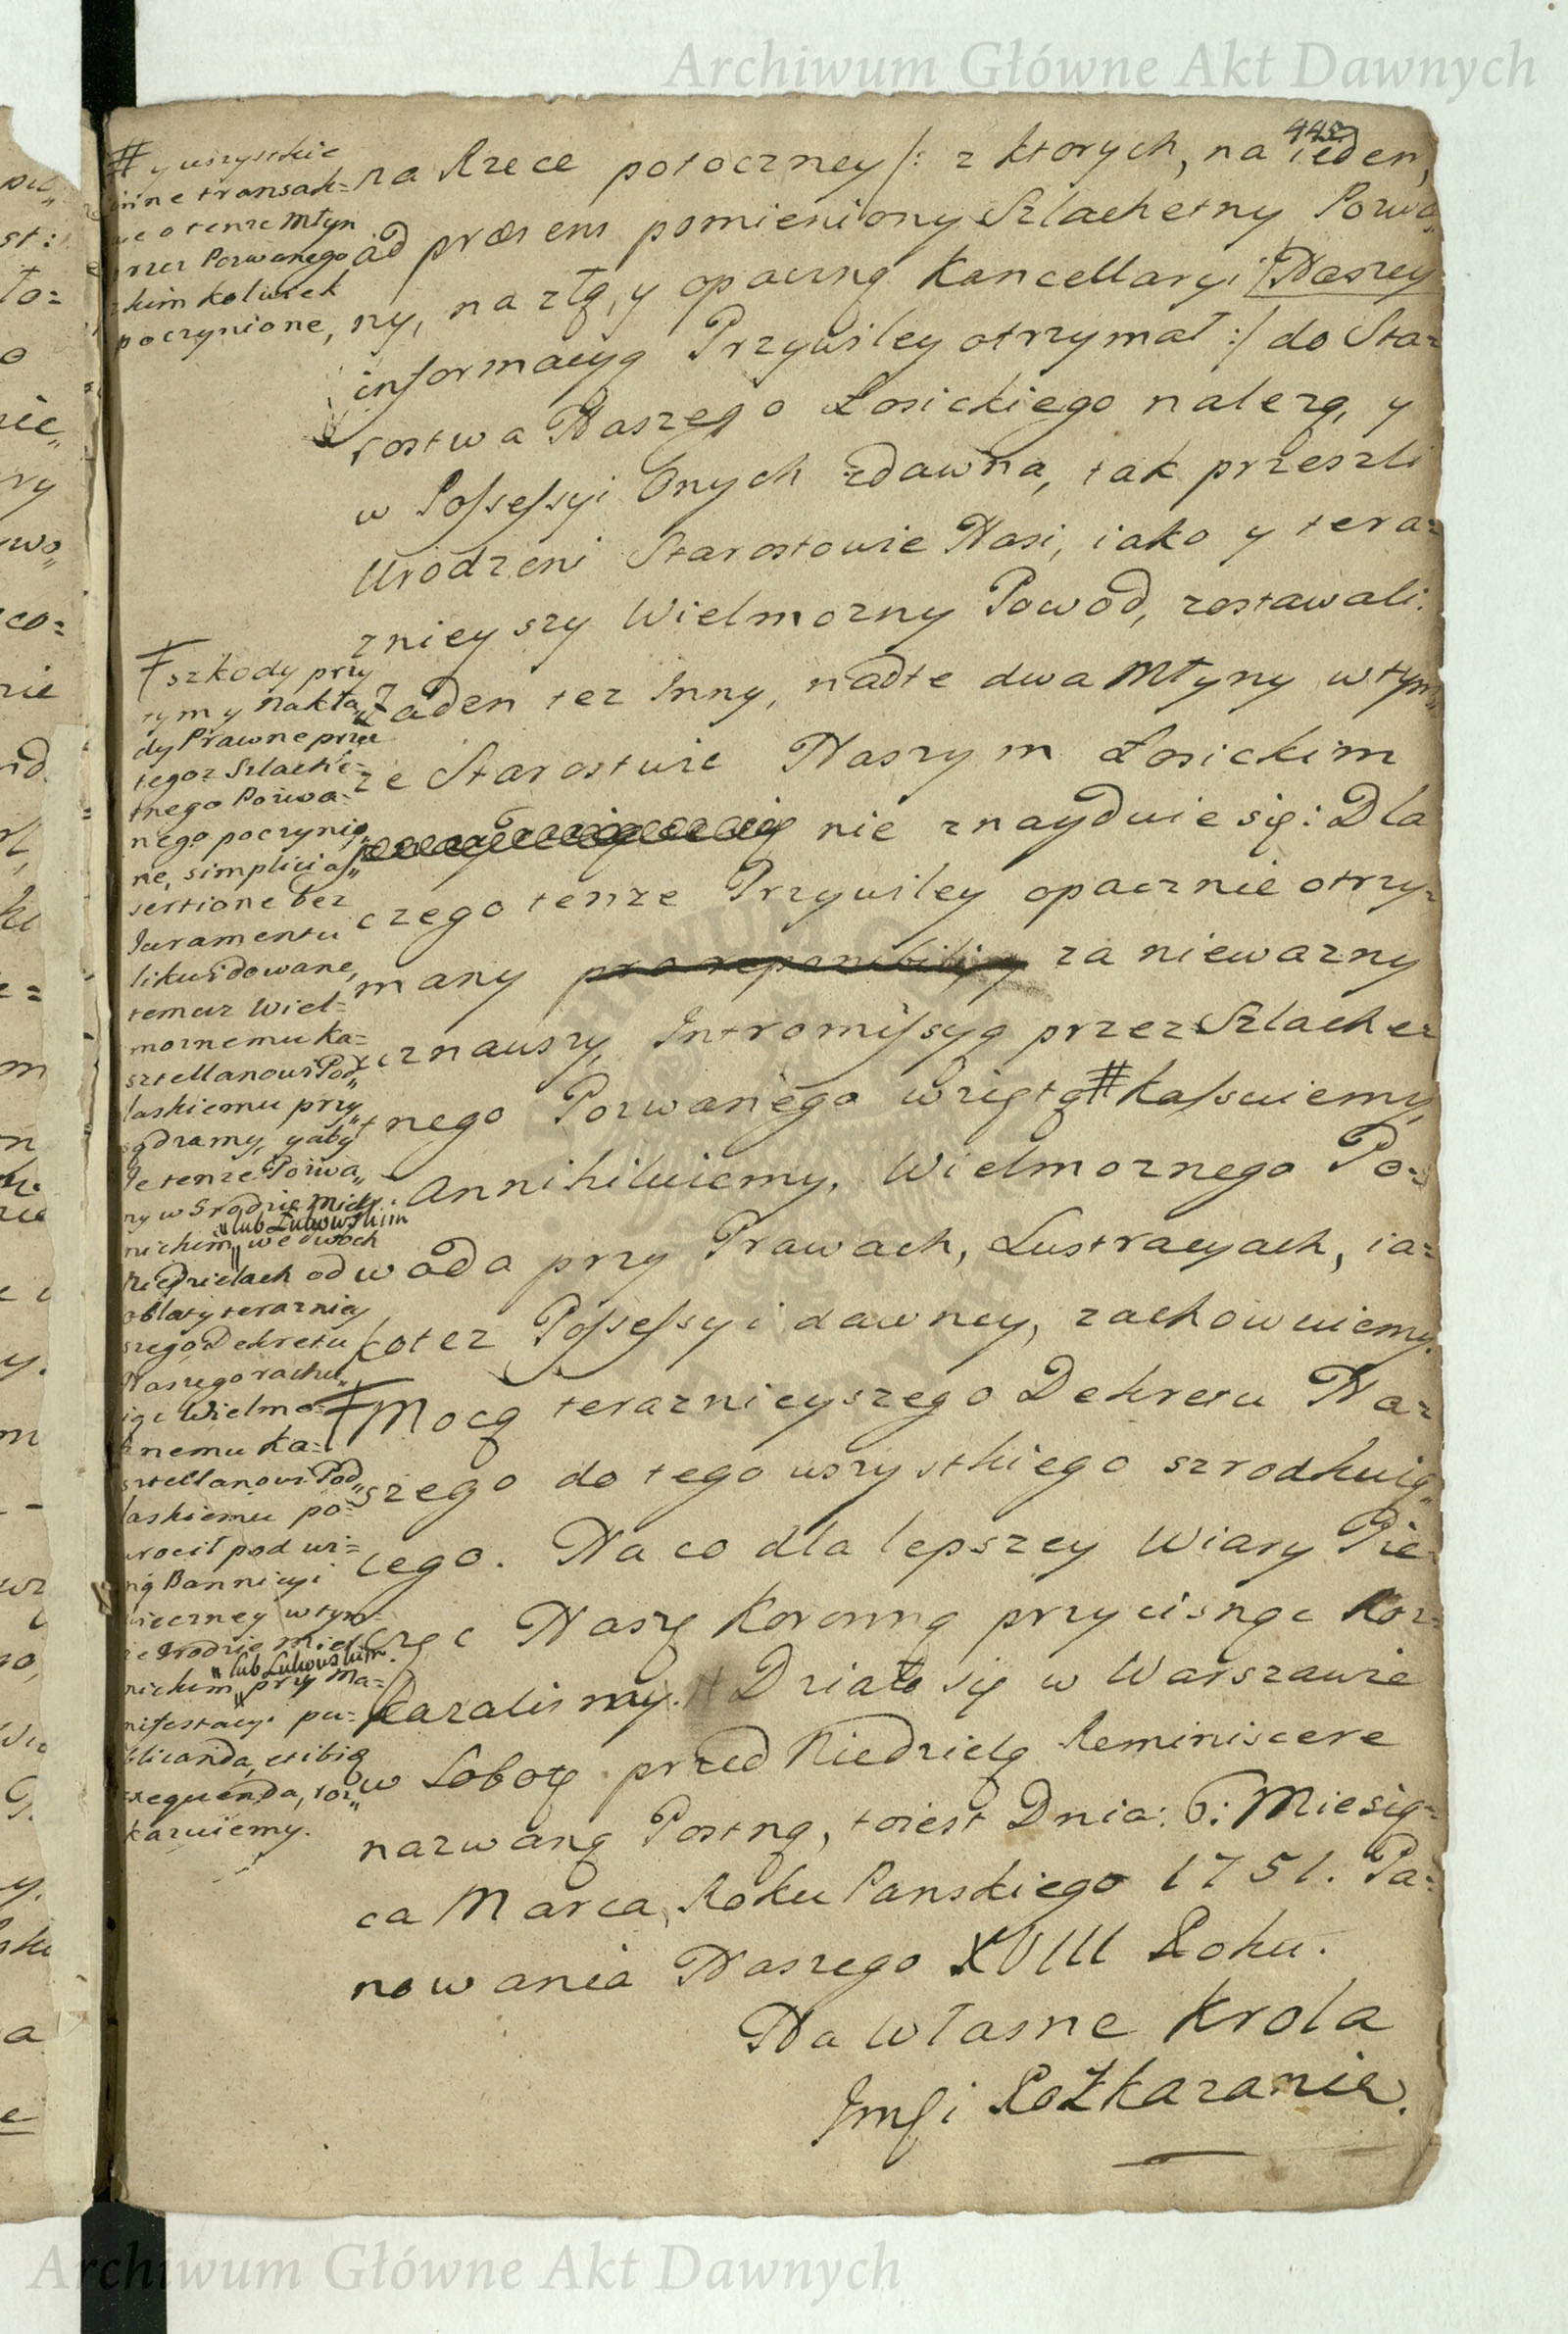 Archiwum Główne Akt Dawnych
445
na Rzece potoczney /: z ktorych, na ieden,
ad præsens pomieniony Szlachetny Pozwa„
ny, na złą, y opaczną Kancellaryi Naszey
informacyą Przywiley otrzymał :/ do Sta=
rostwa Naszego Łosickiego należą, y
w Possessyi Onych zdawna, tak przeszli
Urodzeni Starostowie Nasi, iako y tera=
znieyszy Wielmozny Powod, zostawali.
Zaden tez Inny, nadte dwa Młyny wtym„
ze Starostwie Naszym Łosickim
nie znayduie się: Dla
czego tenze Przywiley opacznie otrzy=
many za niewazny
uznawszy, Intromissyą przez Szlache=
tnego Pozwanego wziętą # Kassuiemy,
annihiluiemy, Wielmoznego Po=
woda przy Prawach, Lustracyach, ia=
kotez Possessyi dawney, zachowuiemy.
Ŧ Mocą teraznieyszego Dekretu Na=
szego do tego wszystkiego szrodkuią„
cego. Na co dla lepszey Wiary Pie=
częc Naszą Koronną przycisnąc Roz=
kazalismy. Działo się w Warszawie
w Sobotę przed Niedzielą Reminiscere
nazwaną Postną, toiest Dnia: 6: Miesią=
ca Marca, Roku Panskiego 1751. Pa=
nowania Naszego XVIII Roku.
Na własne Krola
Jmsi Rozkazanie.
# y wszystkie
inne transak=
cye o tenze Młyn
przez Pozwanego
z kim kolwiek
poczynione,
Ŧ szkody przy
tym y nakła„
dy Prawne prze
tegoz Szlache=
tnego Pozwa=
nego poczynio„
ne, simplici as„
sertione bez
Juramentu
likwidowane,
temuz Wiel=
moznemu Ka=
sztellanowi Pod„
laskiemu przy„
sądzamy, y aby
Je tenze Pozwa„
ny w Grodzie Miel„
„lub Łukowskim
nickim„ we dwoch
Niedzielach od
oblaty terazniey
szego Dekretu
Naszego rachu„
iąc Wielmo=
znemu Ka=
sztellanowi Pod„
laskiemu po=
wrocił pod wi=
ną Bannicyi
wieczney w tym=
ze Grodzie Miel
„lub Łukowskim
nickim„ przy Ma=
nifestacyi pu=
blicanda, et ibid
exequenda, roz„
kazuiemy.
Archiwum Główne Akt Dawnych